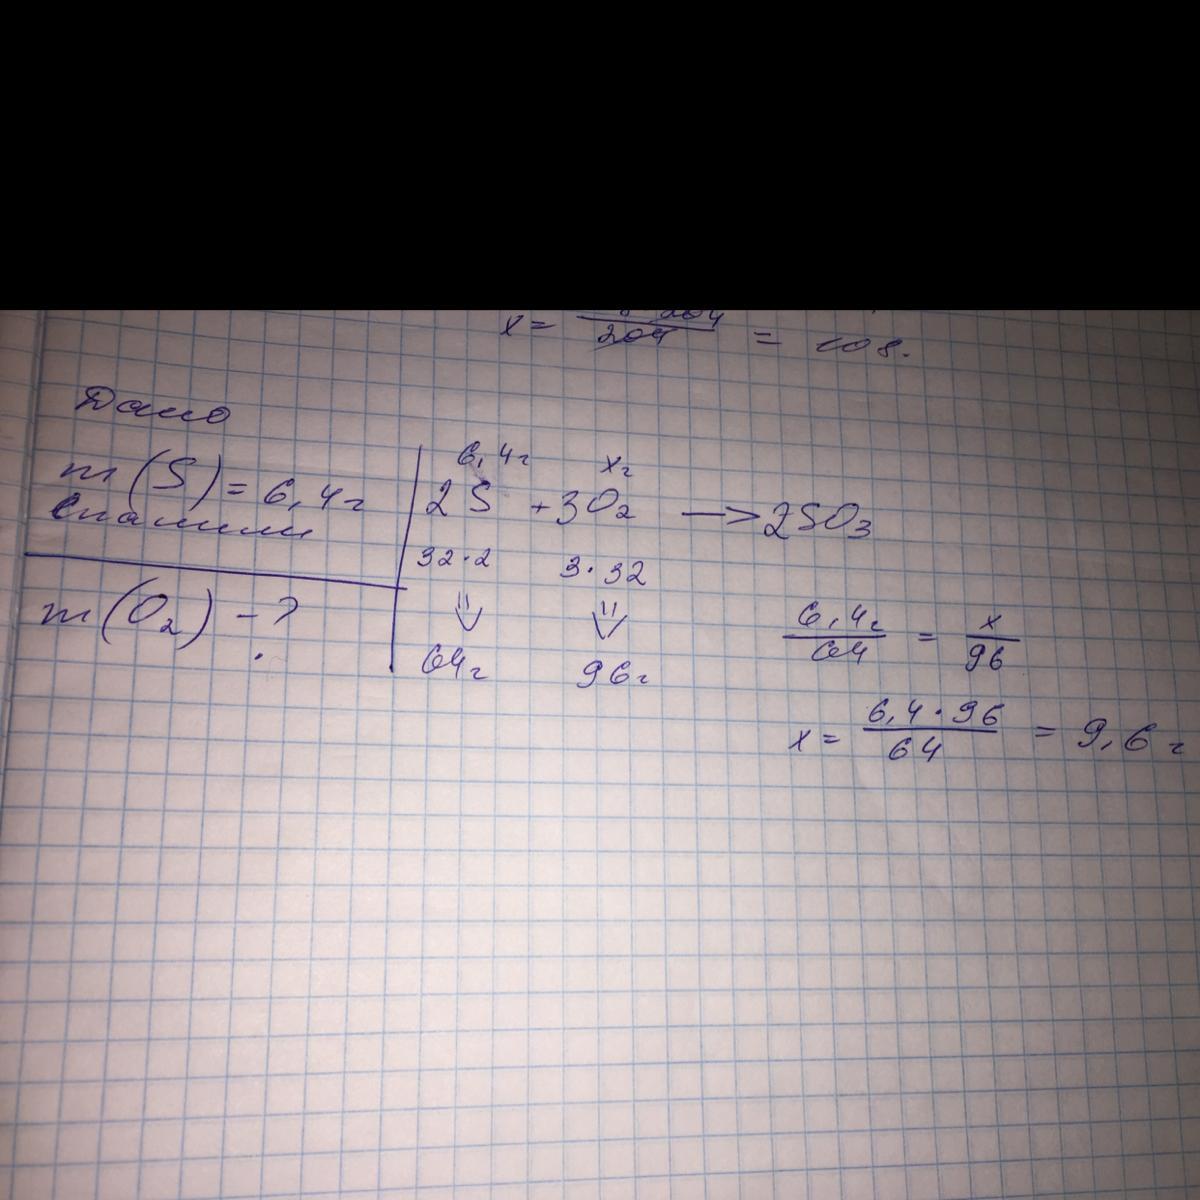 x = 204 / 204 = 108.
Дано
m(S) = 6,4г
Спалили
m(O₂) - ?
6,4г xг
2S + 3O₂ → 2SO₃
32·2 3·32
⇓ ⇓
64г 96г
6,4г / 64 = x / 96
x = 6,4·96 / 64 = 9,6 г